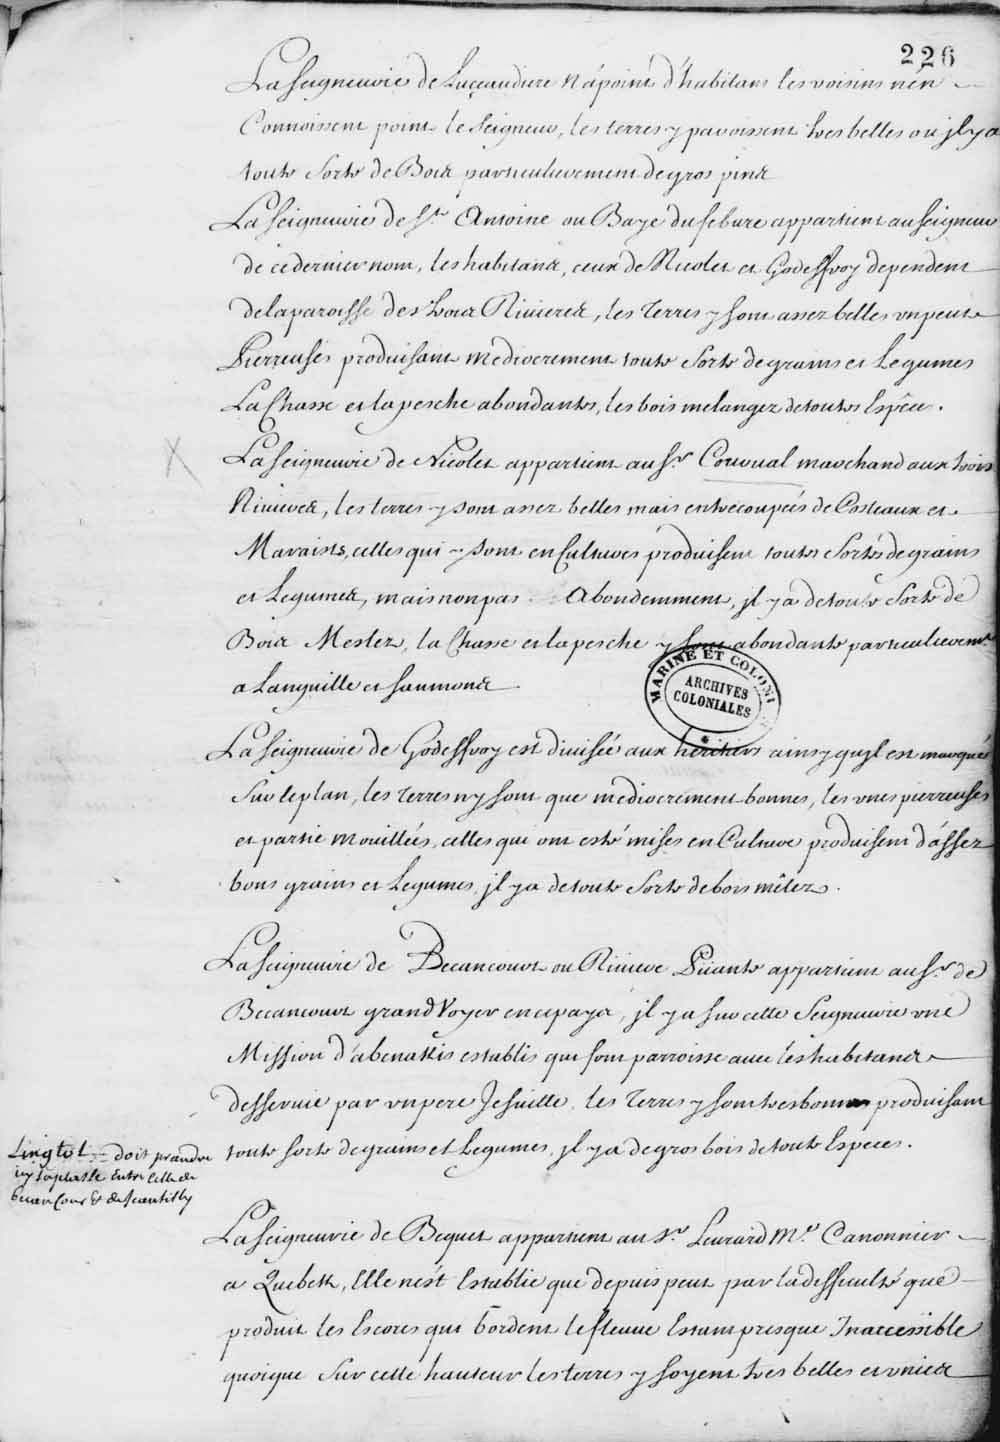 226
La seigneurie de Lussaudiere n'a point d'habitans les voisins n'en
Connoissent point le Seigneur, les terres y paroissent tres belles ou jl y a
toute sorte de Bois particulierement de gros pins
La seigneurie de St. Antoine ou Baye du febure appartient au seigneur
de ce dernier nom, les habitans, ceux de Nicolet et Godeffroy dependent
de la paroisse des trois Rivieres, les Terres y sont assez belles un peu
Pierreuses produisant mediocrement toute sorte de grains et Legumes
La Chasse et la pesche abondantes, les bois melangez de toutes Espêces.
La seigneurie de Nicolet appartient au Sr. Courual marchand aux trois
Rivieres, les terres y sont assez belles mais entrecoupées de Costeaux et
Maraists, celles qui y sont en Cultures produisent toutes Sortes de grains
et Legumes, mais non pas Abondemment, jl y a de toute Sorte de
Bois Meslez, la Chasse et la pesche y sont abondante particulieremt.
a Languille et saumons
MARINE ET COLONI
ARCHIVES
COLONIALES
La seigneurie de Godeffroy est divisée aux heritiers ainsy qu'jl est marqué
Sur le plan, les Terres n'y sont que mediocrement bonnes, les unes pierreuses
et partie mouillées, celles qui ont esté mises en Culture produisent d'assez
bons grains et Legumes, jl y a de toute Sorte de bois mêlez.
La seigneurie de Becancourt ou Riviere Püante appartient au Sr. de
Becancourt grand Voyer en ce pays, jl y a sur cette Seigneurie une
Mission d'abenakis establis qui font parroisse avec les habitans
desservie par un pere Jesuitte, les Terres y sont tres bonnes produisant
toute sorte de grains et Legumes, jl y a de gros bois de toute Especes.
Linctot doit prandre
icy sa plasse Entre celle de
becancour & de Jeantilly
La seigneurie de Bequet appartient au Sr. Leurard Me. Canonnier
a Quebek, Elle n'est Establie que depuis peu par la difficulté que
produit les Escores qui bordent le fleuve Estant presque Inaccessible
quoique Sur cette hauteur les terres y soyent tres belles et unies